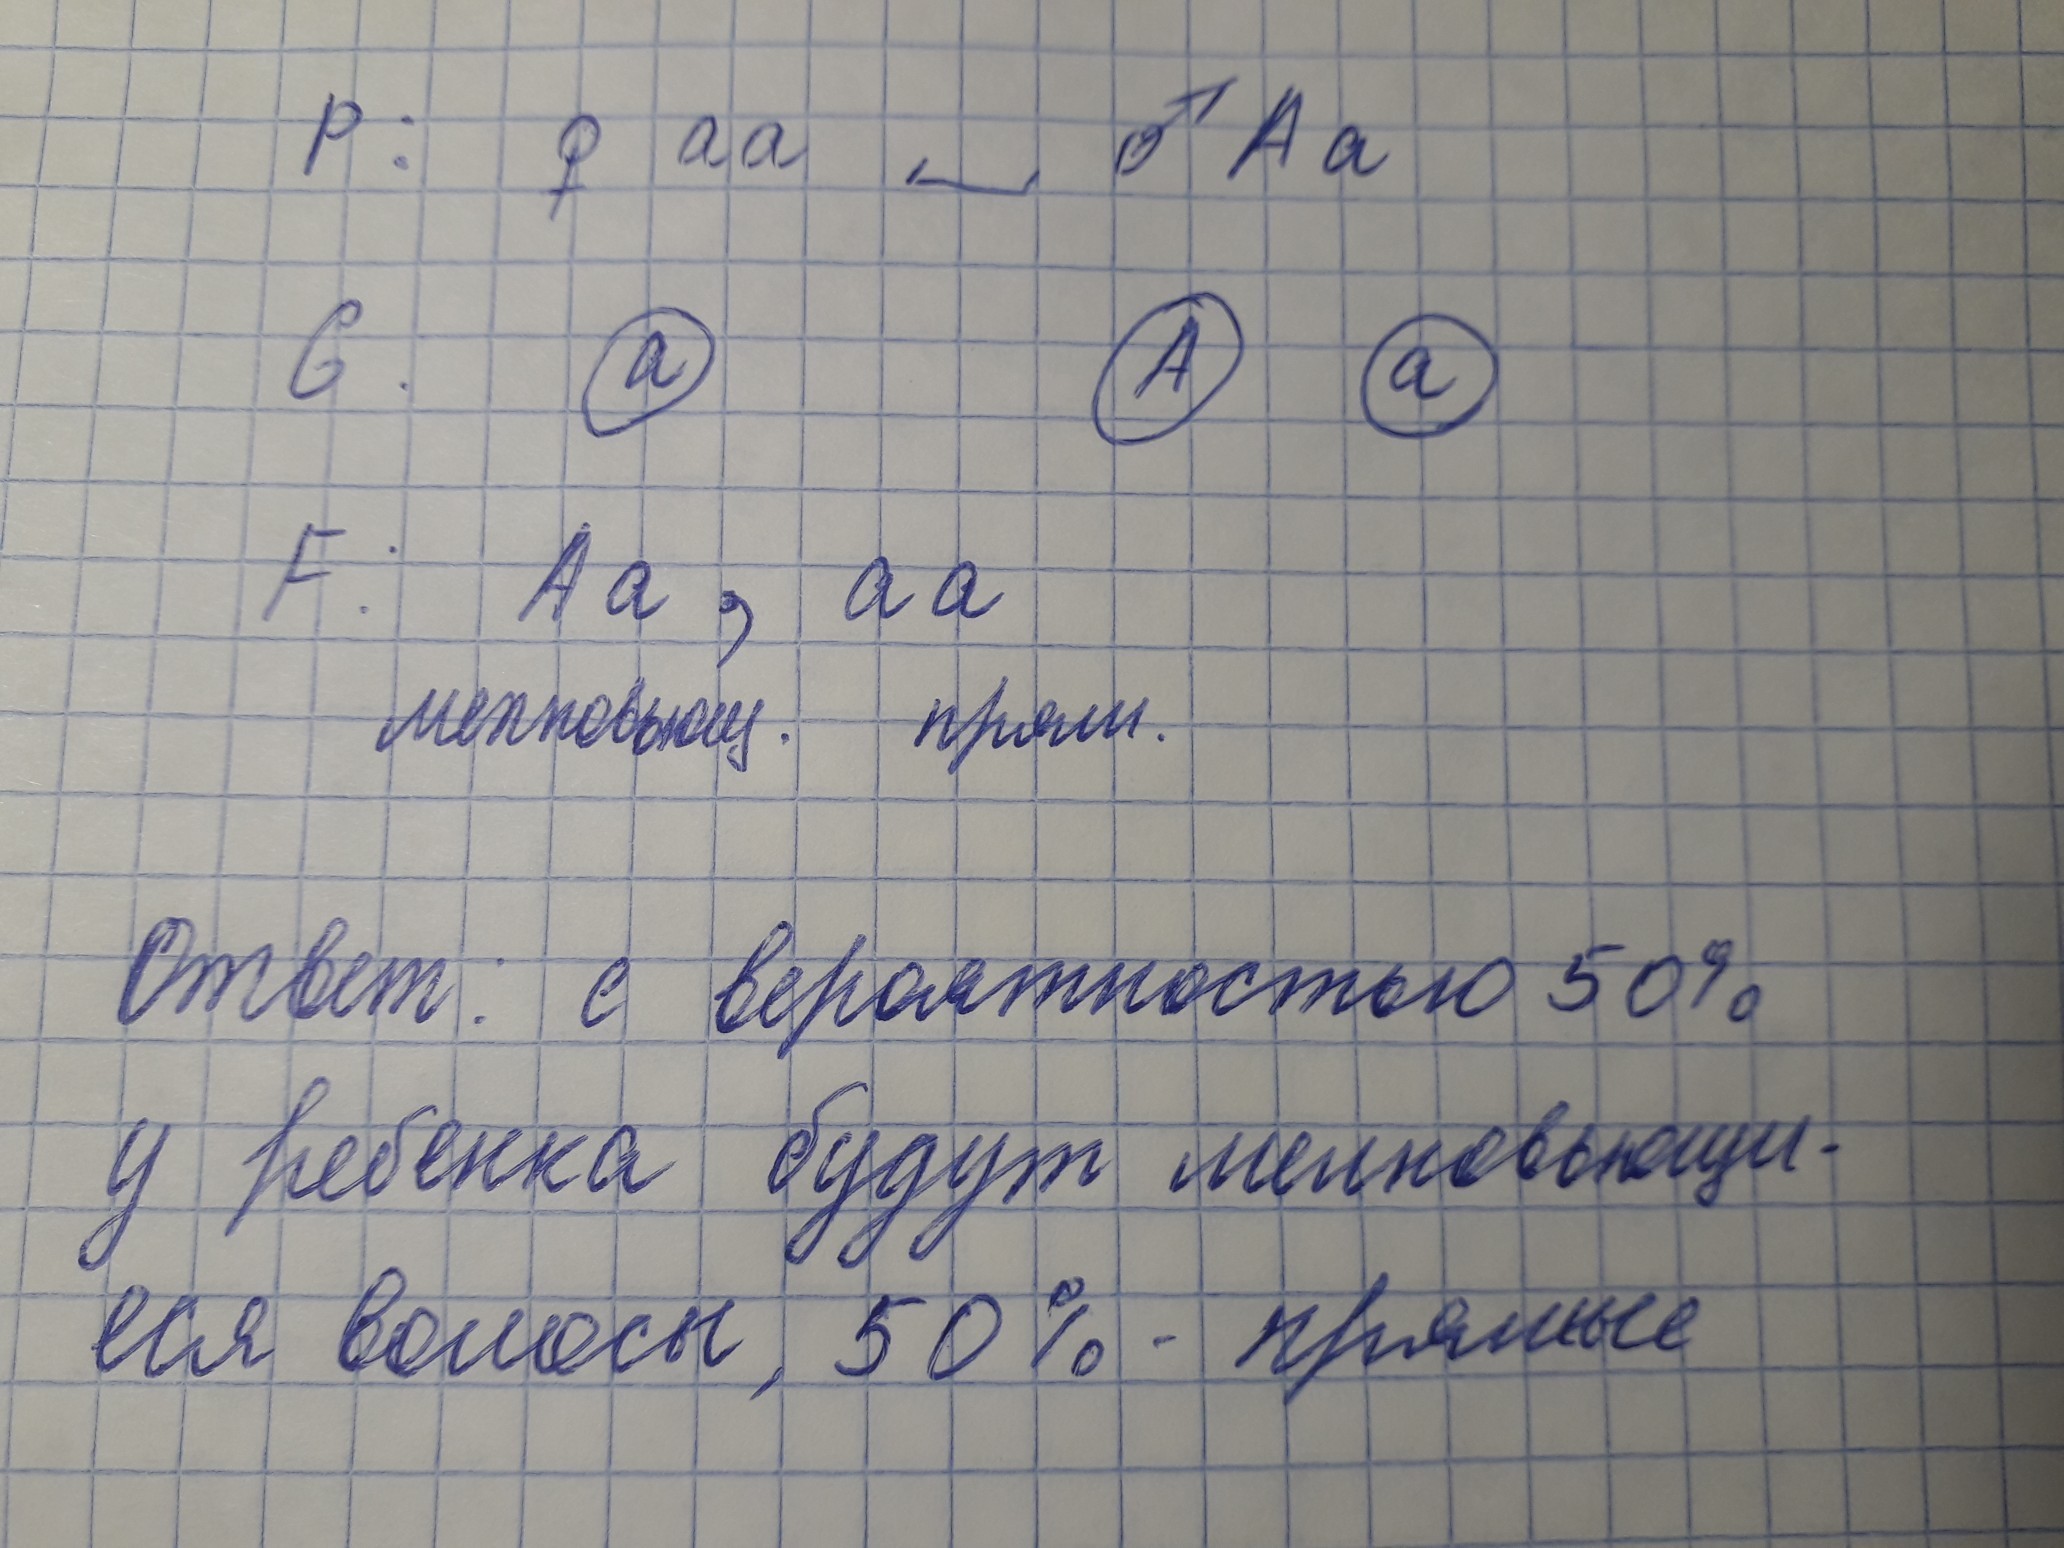 P: ♀ aa ♂ Aa
G. a A a
F: Aa, aa
мелковьющ. прям.
Ответ: с вероятностью 50%
у ребенка будут мелковьющи-
еся волосы, 50% - прямые